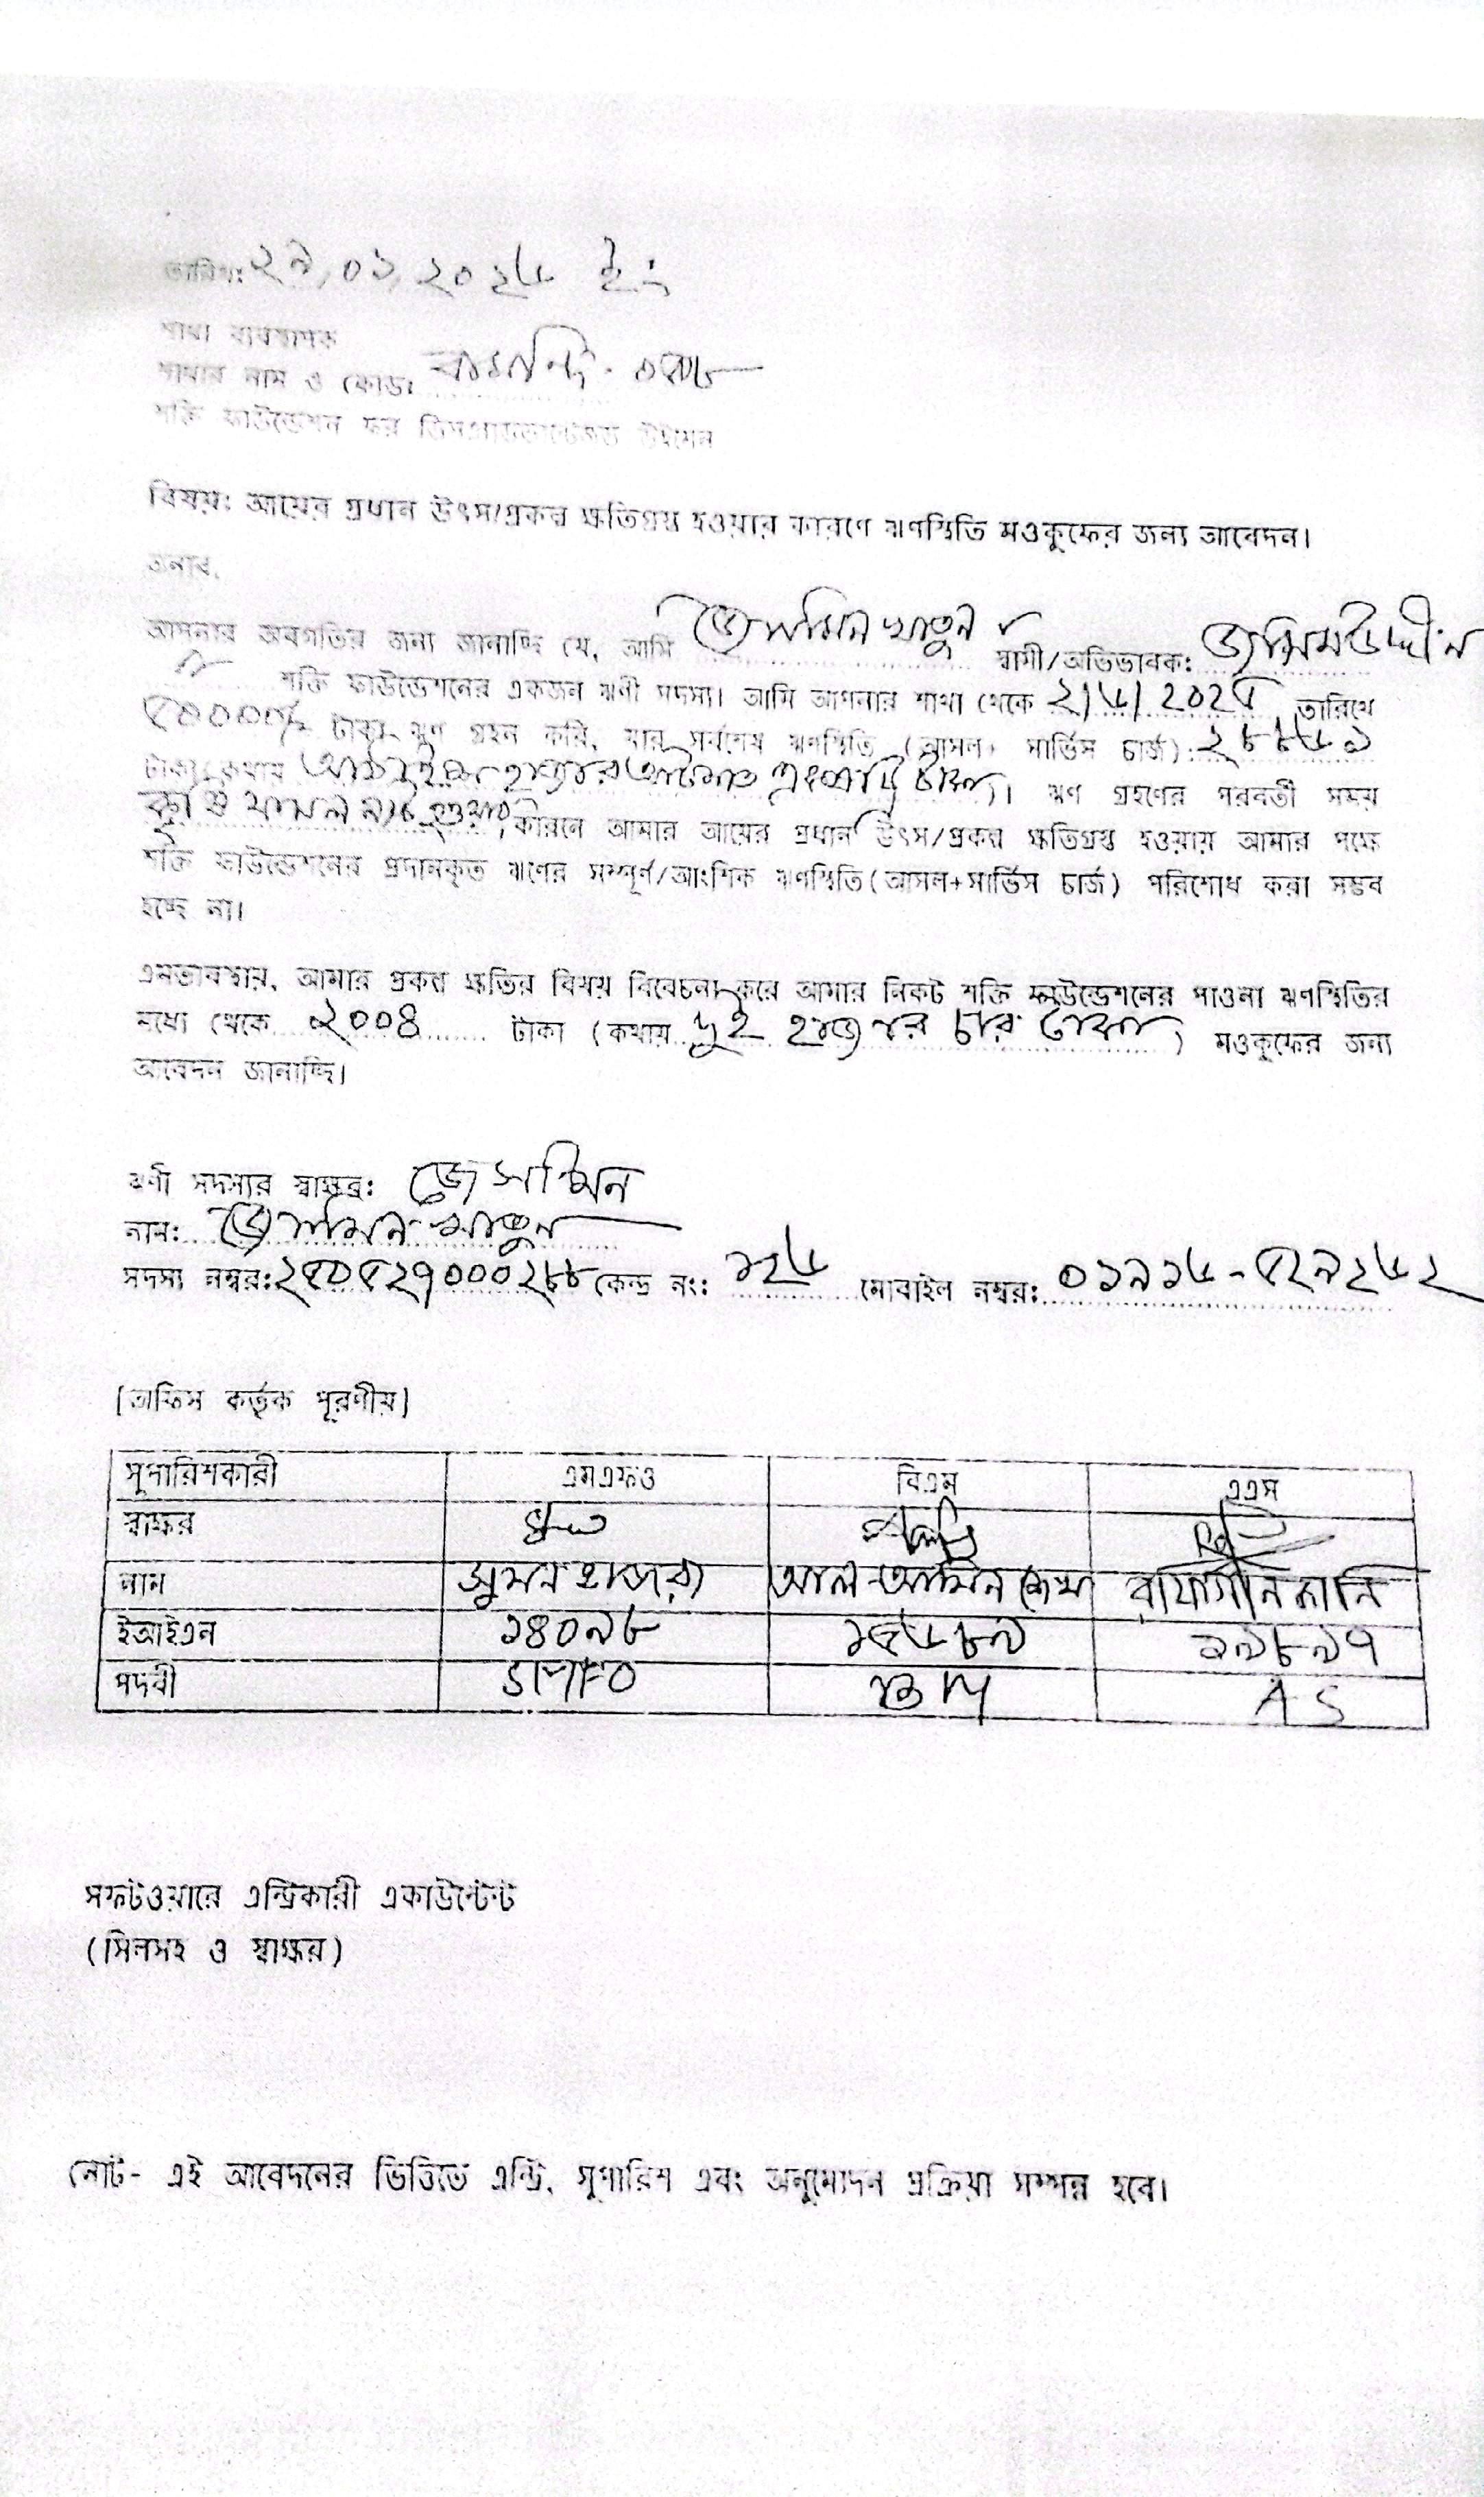 তারিখ: ২৯,০১,২০২৬ ইং
শাখা ব্যবস্থাপক
শাখার নাম ও কোড: বামান্দি-
শক্তি ফাউন্ডেশন ফর ডিসএ্যাডভান্টেজড উইমেন
বিষয়: আয়ের প্রধান উৎস/প্রকল্প ক্ষতিগ্রস্ত হওয়ার কারণে ঋণস্থিতি মওকুফের জন্য আবেদন।
জনাব,
আপনার অবগতির জন্য জানাচ্ছি যে, আমি জেসমিন খাতুন স্বামী/অভিভাবক: জসিমউদ্দীন
শক্তি ফাউন্ডেশনের একজন ঋণী সদস্য। আমি আপনার শাখা থেকে ২/৬/2025 তারিখে
৫০০০০/= টাকা ঋণ গ্রহন করি, যার সর্বশেষ ঋণস্থিতি (আসল+ সার্ভিস চার্জ): ২৮৮৬১
টাকা (কথায় আঠাইশ হাজার আটশত একষট্টি টাকা)। ঋণ গ্রহণের পরবর্তী সময়
কৃষি ফসল নষ্ট হওয়ায় কারনে আমার আয়ের প্রধান উৎস/প্রকল্প ক্ষতিগ্রস্ত হওয়ায় আমার পক্ষে
শক্তি ফাউন্ডেশনের প্রদানকৃত ঋণের সম্পূর্ণ/আংশিক ঋণস্থিতি (আসল+সার্ভিস চার্জ) পরিশোধ করা সম্ভব
হচ্ছে না।
এমতাবস্থায়, আমার প্রকল্প ক্ষতির বিষয় বিবেচনা করে আমার নিকট শক্তি ফাউন্ডেশনের পাওনা ঋণস্থিতির
মধ্যে থেকে ২০০৪ টাকা (কথায় দুই হাজার চার টাকা) মওকুফের জন্য
আবেদন জানাচ্ছি।
ঋণী সদস্যর স্বাক্ষর: জেসমিন
নাম: জেসমিন খাতুন
সদস্য নম্বর: ২৫০৫২৭০০০২৮৮ কেন্দ্র নং: ১২৬ মোবাইল নম্বর: ০১৯১৬-৫২৯২৬২
[অফিস কর্তৃক পূরণীয়]
সুপারিশকারী এমএফও বিএম এএস
স্বাক্ষর
নাম সুমন হাজরা আল আমিন শেখ
ইআইএন ১৪০৯৮ ১৫৬৮৯ ১৯৮৯৭
পদবী SMFO BM AS
সফটওয়ারে এন্ট্রিকারী একাউন্টেন্ট
(সিলসহ ও স্বাক্ষর)
নোট- এই আবেদনের ভিত্তিতে এন্ট্রি, সুপারিশ এবং অনুমোদন প্রক্রিয়া সম্পন্ন হবে।